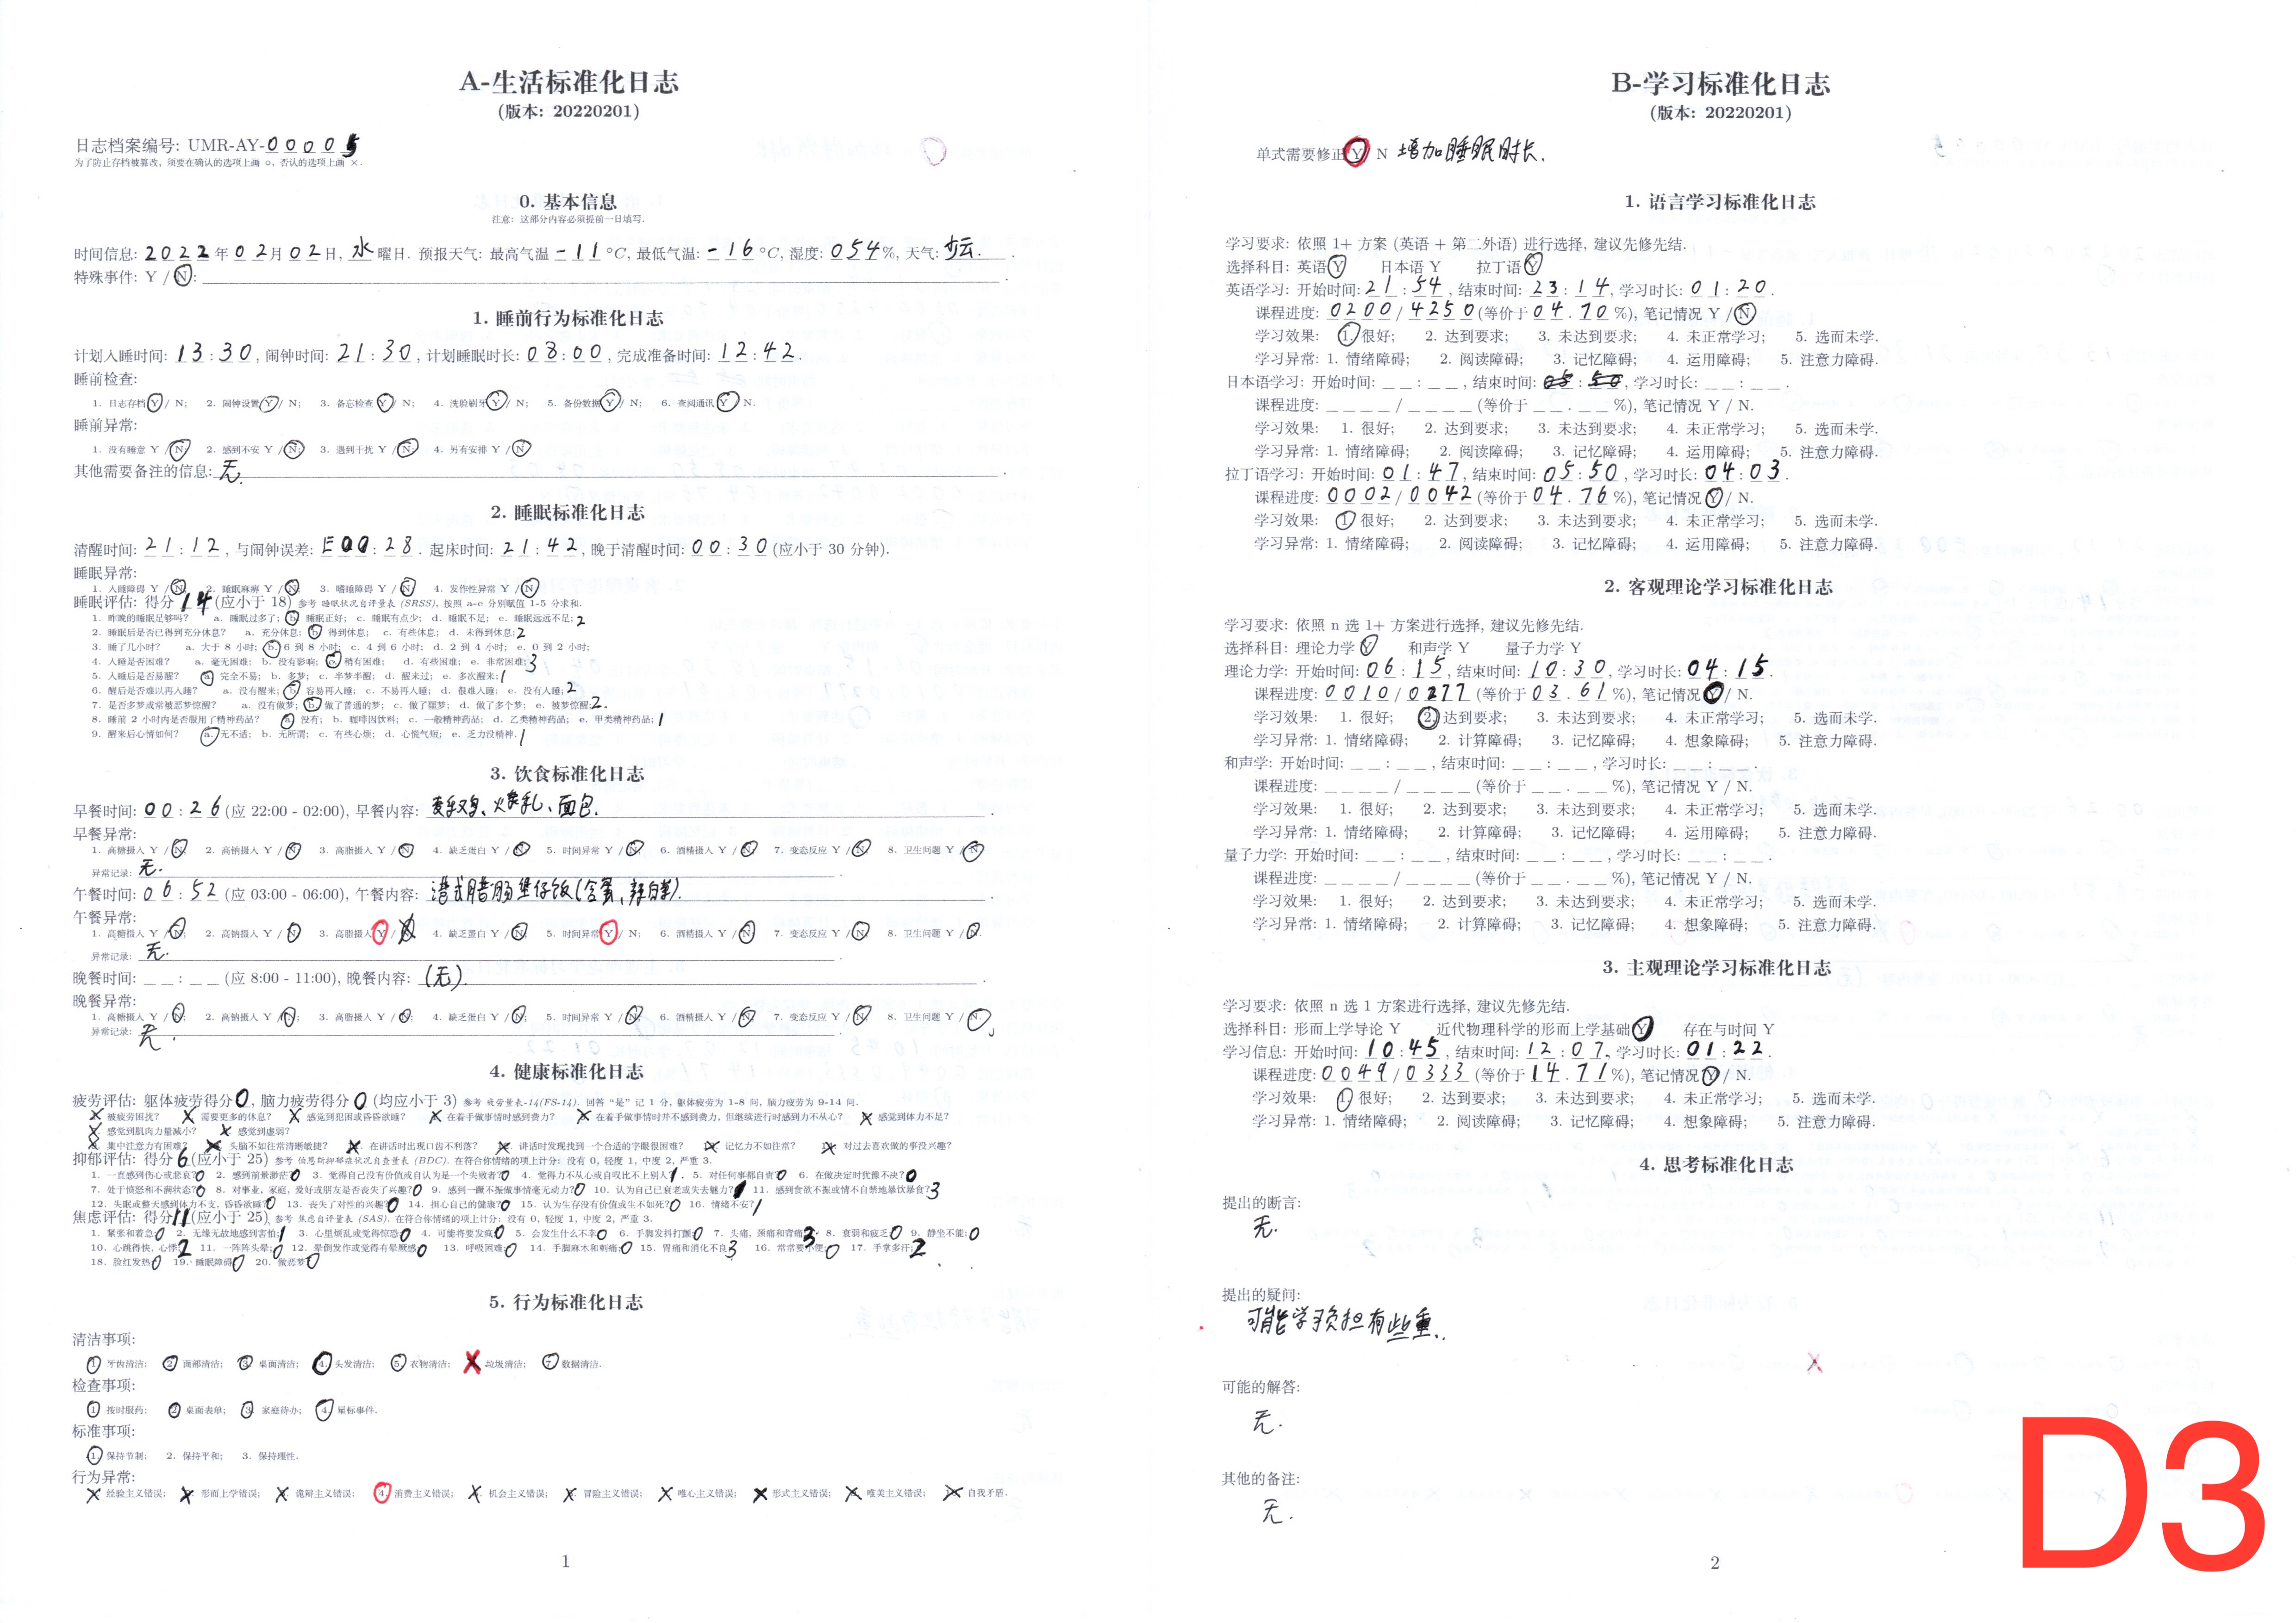 A-生活标准化日志
(版本: 20220201)
日志档案编号: UMR-AY-00005
为了防止存档被篡改, 须要在确认的选项上画 o, 否认的选项上画 ×.
0. 基本信息
注意: 这部分内容必须提前一日填写.
时间信息: 2022 年 02 月 02 日, 水 曜日. 预报天气: 最高气温 -11 °C, 最低气温: -16 °C, 湿度: 054 %, 天气: 少云.
特殊事件: Y / N:
1. 睡前行为标准化日志
计划入睡时间: 13:30, 闹钟时间: 21:30, 计划睡眠时长: 08:00, 完成准备时间: 12:42.
睡前检查:
1. 日志存档 Y / N; 2. 闹钟设置 Y / N; 3. 备忘检查 Y / N; 4. 洗脸刷牙 Y / N; 5. 备份数据 Y / N; 6. 查阅通讯 Y / N.
睡前异常:
1. 没有睡意 Y / N; 2. 感到不安 Y / N; 3. 遇到干扰 Y / N; 4. 另有安排 Y / N
其他需要备注的信息: 无.
2. 睡眠标准化日志
清醒时间: 21:12, 与闹钟误差: E00:28. 起床时间: 21:42, 晚于清醒时间: 00:30 (应小于 30 分钟).
睡眠异常:
1. 入睡障碍 Y / N; 2. 睡眠麻痹 Y / N; 3. 嗜睡障碍 Y / N; 4. 发作性异常 Y / N
睡眠评估: 得分 14 (应小于 18) 参考 睡眠状况自评量表 (SRSS), 按照 a-e 分别赋值 1-5 分求和.
1. 昨晚的睡眠足够吗? a. 睡眠过多了; b. 睡眠正好; c. 睡眠有点少; d. 睡眠不足; e. 睡眠远远不足; 2
2. 睡眠后是否已得到充分休息? a. 充分休息; b. 得到休息; c. 有些休息; d. 未得到休息; 2
3. 睡了几小时? a. 大于 8 小时; b. 6 到 8 小时; c. 4 到 6 小时; d. 2 到 4 小时; e. 0 到 2 小时;
4. 入睡是否困难? a. 毫无困难; b. 没有影响; c. 稍有困难; d. 有些困难; e. 非常困难; 3
5. 入睡后是否易醒? a. 完全不易; b. 多梦; c. 半梦半醒; d. 醒来过; e. 多次醒来; 1
6. 醒后是否难以再入睡? a. 没有醒来; b. 容易再入睡; c. 不易再入睡; d. 很难入睡; e. 没有入睡; 2
7. 是否多梦或常被恶梦惊醒? a. 没有做梦; b. 做了普通的梦; c. 做了噩梦; d. 做了多个梦; e. 被梦惊醒; 2.
8. 睡前 2 小时内是否服用了精神药品? a. 没有; b. 咖啡因饮料; c. 一般精神药品; d. 乙类精神药品; e. 甲类精神药品; 1
9. 醒来后心情如何? a. 无不适; b. 无所谓; c. 有些心烦; d. 心慌气短; e. 乏力没精神. 1
3. 饮食标准化日志
早餐时间: 00:26 (应 22:00 - 02:00), 早餐内容: 麦乐鸡、火鸡、面包.
早餐异常:
1. 高糖摄入 Y / N; 2. 高钠摄入 Y / N; 3. 高脂摄入 Y / N; 4. 缺乏蛋白 Y / N; 5. 时间异常 Y / N; 6. 酒精摄入 Y / N; 7. 变态反应 Y / N; 8. 卫生问题 Y / N
异常记录: 无.
午餐时间: 06:52 (应 03:00 - 06:00), 午餐内容: 港式腊肠堡仔饭(含蛋、辣白菜).
午餐异常:
1. 高糖摄入 Y / N; 2. 高钠摄入 Y / N; 3. 高脂摄入 Y / N; 4. 缺乏蛋白 Y / N; 5. 时间异常 Y / N; 6. 酒精摄入 Y / N; 7. 变态反应 Y / N; 8. 卫生问题 Y / N.
异常记录: 无.
晚餐时间: __:__ (应 8:00 - 11:00), 晚餐内容: (无).
晚餐异常:
1. 高糖摄入 Y / N; 2. 高钠摄入 Y / N; 3. 高脂摄入 Y / N; 4. 缺乏蛋白 Y / N; 5. 时间异常 Y / N; 6. 酒精摄入 Y / N; 7. 变态反应 Y / N; 8. 卫生问题 Y / N.
异常记录: 无.
4. 健康标准化日志
疲劳评估: 躯体疲劳得分 0, 脑力疲劳得分 0 (均应小于 3) 参考 疲劳量表-14(FS-14). 回答 “是” 记 1 分, 躯体疲劳为 1-8 问, 脑力疲劳为 9-14 问.
被疲劳困扰? 需要更多的休息? 感觉到犯困或昏昏欲睡? 在着手做事情时感到费力? 在着手做事情时并不感到费力, 但继续进行时感到力不从心? 感觉到体力不足?
感觉到肌肉力量减小? 感觉到虚弱?
集中注意力有困难? 头脑不如往常清晰敏捷? 在讲话时出现口齿不利落? 讲话时发现找到一个合适的字眼很困难? 记忆力不如往常? 对过去喜欢做的事没兴趣?
抑郁评估: 得分 6 (应小于 25) 参考 伯恩斯抑郁症状况自查量表 (BDC). 在符合你情绪的项上计分: 没有 0, 轻度 1, 中度 2, 严重 3.
1. 一直感到伤心或悲哀? 0 2. 感到前景渺茫? 0 3. 觉得自己没有价值或自认为是一个失败者? 0 4. 觉得力不从心或自叹比不上别人? 1. 5. 对任何事都自责? 0 6. 在做决定时犹豫不决? 0
7. 处于愤怒和不满状态? 0 8. 对事业, 家庭, 爱好或朋友是否丧失了兴趣? 0 9. 感到一蹶不振做事情毫无动力? 0 10. 认为自己已衰老或失去魅力? 11. 感到食欲不振或情不自禁地暴饮暴食? 3
12. 失眠或整天感到体力不支, 昏昏欲睡? 0 13. 丧失了对性的兴趣? 0 14. 担心自己的健康? 0 15. 认为生存没有价值或生不如死? 0 16. 情绪不安? 1
焦虑评估: 得分 11 (应小于 25) 参考 焦虑自评量表 (SAS). 在符合你情绪的项上计分: 没有 0, 轻度 1, 中度 2, 严重 3.
1. 紧张和着急; 0 2. 无缘无故地感到害怕; 1 3. 心里烦乱或觉得惊恐; 0 4. 可能将要发疯; 0 5. 会发生什么不幸; 0 6. 手脚发抖打颤; 0 7. 头痛, 颈痛和背痛; 3 8. 衰弱和疲乏; 0 9. 静坐不能; 0
10. 心跳得快, 心悸; 2 11. 一阵阵头晕; 0 12. 晕倒发作或觉得有晕厥感; 0 13. 呼吸困难; 0 14. 手脚麻木和刺痛; 0 15. 胃痛和消化不良; 3 16. 常常要小便; 0 17. 手掌多汗; 2
18. 脸红发热; 0 19. 睡眠障碍; 0 20. 做恶梦; 0
5. 行为标准化日志
清洁事项:
1. 牙齿清洁; 2. 面部清洁; 3. 桌面清洁; 4. 头发清洁; 5. 衣物清洁; 垃圾清洁; 7. 数据清洁.
检查事项:
1. 按时服药; 2. 桌面表单; 3. 家庭待办; 4. 星标事件.
标准事项:
1. 保持节制; 2. 保持平和; 3. 保持理性.
行为异常:
经验主义错误; 形而上学错误; 诡辩主义错误; 4. 消费主义错误; 机会主义错误; 冒险主义错误; 唯心主义错误; 形式主义错误; 唯美主义错误; 自我矛盾.
1
B-学习标准化日志
(版本: 20220201)
单式需要修正 Y / N 增加睡眠时长.
1. 语言学习标准化日志
学习要求: 依照 1+ 方案 (英语 + 第二外语) 进行选择, 建议先修先结.
选择科目: 英语 Y 日本语 Y 拉丁语 Y
英语学习: 开始时间: 21:54, 结束时间: 23:14, 学习时长: 01:20.
课程进度: 0200/4250 (等价于 04.70 %), 笔记情况 Y / N
学习效果: 1. 很好; 2. 达到要求; 3. 未达到要求; 4. 未正常学习; 5. 选而未学.
学习异常: 1. 情绪障碍; 2. 阅读障碍; 3. 记忆障碍; 4. 运用障碍; 5. 注意力障碍.
日本语学习: 开始时间: __:__, 结束时间: 05:50, 学习时长: __:__.
课程进度: ____/____ (等价于 __.__ %), 笔记情况 Y / N.
学习效果: 1. 很好; 2. 达到要求; 3. 未达到要求; 4. 未正常学习; 5. 选而未学.
学习异常: 1. 情绪障碍; 2. 阅读障碍; 3. 记忆障碍; 4. 运用障碍; 5. 注意力障碍.
拉丁语学习: 开始时间: 01:47, 结束时间: 05:50, 学习时长: 04:03.
课程进度: 0002/0042 (等价于 04.76 %), 笔记情况 Y / N.
学习效果: 1. 很好; 2. 达到要求; 3. 未达到要求; 4. 未正常学习; 5. 选而未学.
学习异常: 1. 情绪障碍; 2. 阅读障碍; 3. 记忆障碍; 4. 运用障碍; 5. 注意力障碍.
2. 客观理论学习标准化日志
学习要求: 依照 n 选 1+ 方案进行选择, 建议先修先结.
选择科目: 理论力学 Y 和声学 Y 量子力学 Y
理论力学: 开始时间: 06:15, 结束时间: 10:30, 学习时长: 04:15.
课程进度: 0010/0277 (等价于 03.61 %), 笔记情况 Y / N.
学习效果: 1. 很好; 2. 达到要求; 3. 未达到要求; 4. 未正常学习; 5. 选而未学.
学习异常: 1. 情绪障碍; 2. 计算障碍; 3. 记忆障碍; 4. 想象障碍; 5. 注意力障碍.
和声学: 开始时间: __:__, 结束时间: __:__, 学习时长: __:__.
课程进度: ____/____ (等价于 __.__ %), 笔记情况 Y / N.
学习效果: 1. 很好; 2. 达到要求; 3. 未达到要求; 4. 未正常学习; 5. 选而未学.
学习异常: 1. 情绪障碍; 2. 计算障碍; 3. 记忆障碍; 4. 运用障碍; 5. 注意力障碍.
量子力学: 开始时间: __:__, 结束时间: __:__, 学习时长: __:__.
课程进度: ____/____ (等价于 __.__ %), 笔记情况 Y / N.
学习效果: 1. 很好; 2. 达到要求; 3. 未达到要求; 4. 未正常学习; 5. 选而未学.
学习异常: 1. 情绪障碍; 2. 计算障碍; 3. 记忆障碍; 4. 想象障碍; 5. 注意力障碍.
3. 主观理论学习标准化日志
学习要求: 依照 n 选 1 方案进行选择, 建议先修先结.
选择科目: 形而上学导论 Y 近代物理科学的形而上学基础 Y 存在与时间 Y
学习信息: 开始时间: 10:45, 结束时间: 12:07, 学习时长: 01:22.
课程进度: 0049/0333 (等价于 14.71 %), 笔记情况 Y / N.
学习效果: 1. 很好; 2. 达到要求; 3. 未达到要求; 4. 未正常学习; 5. 选而未学.
学习异常: 1. 情绪障碍; 2. 计算障碍; 3. 记忆障碍; 4. 想象障碍; 5. 注意力障碍.
4. 思考标准化日志
提出的断言:
无.
提出的疑问:
可能学习负担有些重.
可能的解答:
无.
其他的备注:
无.
2
D3